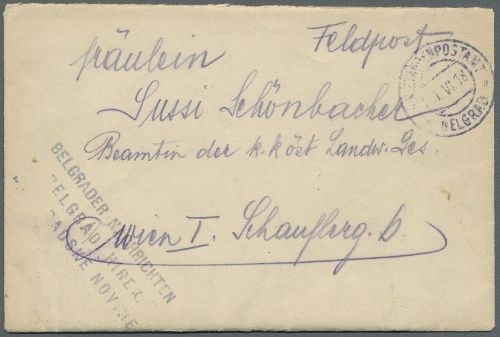 Feldpost
Fräulein
Sussi Schönbacher
Beamtin der k. k. öst Landw. Ges.
Wien I. Schauflerg. 6
K.u.K. ETAPPENPOSTAMT
VI. 18
BELGRAD
BELGRADER NACHRICHTEN
BELGRADI HIREK
NOVINE